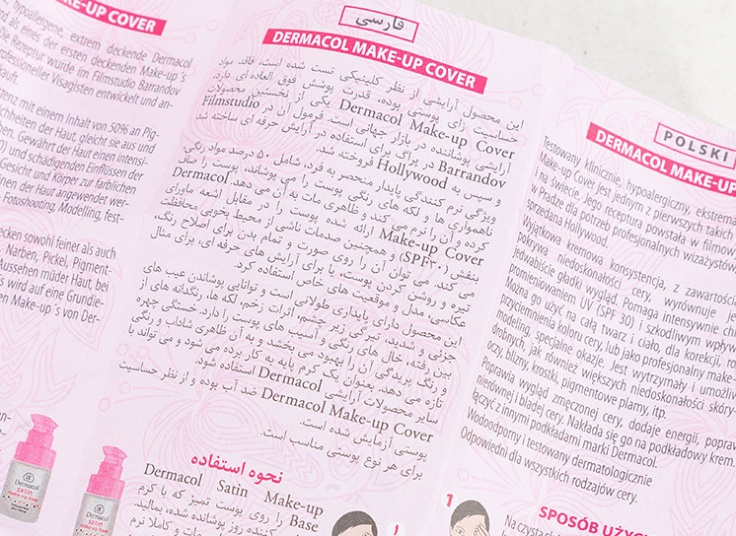 KE-UP COVER
hypoallergene, extrem deckende Dermacol
als eines der ersten deckenden Make-up´s
Die Rezeptur wurde im Filmstudio Barrandov
rofessioneller Visagisten entwickelt und an-
auft.
tenz mit einem Inhalt von 50% an Pig-
chkeiten der Haut, gleicht sie aus und
en. Gewährt der Haut einen intensi-
und schädigenden Einflüssen der
Gesicht und Körper zur farblichen
nen der Haut angewendet wer-
Fotoshooting, Modelling, fest-
ecken sowohl feiner als auch
Narben, Pickel, Pigment-
Aussehen müder Haut, bei
s wird auf eine Grundie-
en Make-up´s von Der-
Dermacol
satin
make-up base
Dermacol
satin
make-up base
فارسی
DERMACOL MAKE-UP COVER
این محصول آرایشی از نظر کلینیکی تست شده است، فاقد مواد
حساسیت زای پوستی بوده، قدرت پوشش فوق العاده ای دارد،
Dermacol Make-up Cover یکی از نخستین محصولات
آرایشی پوشاننده در بازار جهانی است. فرمول آن در Filmstudio
Barrandov در پراگ برای استفاده در آرایش حرفه ای ساخته شد
و سپس به Hollywood فروخته شد.
ویژگی نرم کنندگی پایدار منحصر به فرد، شامل ۵۰ درصد مواد رنگی،
ناهمواری ها و لکه های رنگی پوست را می پوشاند، پوست را صاف
کرده و آن را نرم می کند و ظاهری مات به آن می دهد. Dermacol
Make-up Cover ارائه شده پوست را در مقابل اشعه ماورای
بنفش (SPF۳۰) و همچنین صدمات ناشی از محیط بخوبی محافظت
می کند. می توان آن را روی صورت و تمام بدن برای اصلاح رنگ،
تیره و روشن کردن پوست، یا برای آرایش های حرفه ای، برای مثال
عکاسی، مدل و موقعیت های خاص استفاده کرد.
این محصول دارای پایداری طولانی است و توانایی پوشاندن عیب های
جزئی و شدید، تیرگی زیر چشم، اثرات زخم، لکه ها، رنگدانه های از
بین رفته، خال های رنگی و آسیب های پوست را دارد. خستگی چهره
و رنگ پریدگی آن را بهبود می بخشد و به آن ظاهری شاداب و رنگی
تازه می دهد. بعنوان یک کرم پایه به کار برده می شود و می تواند با
سایر محصولات آرایشی Dermacol استفاده شود.
Dermacol Make-up Cover ضد آب بوده و از نظر حساسیت
پوستی آزمایش شده است.
برای هر نوع پوستی مناسب است.
نحوه استفاده
Dermacol Satin Make-up
Base را روی پوست تمیز که با کرم
کننده روز پوشانده شده، بمالید.
و کاملا نرم
۱
POLSKI
DERMACOL MAKE-UP
Testowany klinicznie, hypoalergiczny, ekstrema
Make-up Cover jest jednym z pierwszych takich
na świecie. Jego receptura powstała w filmow
w Pradze dla potrzeb profesjonalnych wizażystów,
sprzedana Hollywood.
Wyjątkowa kremowa konsystencja, z zawartości
Pokrywa niedoskonałości cery, wyrównuje je
jedwabiście gładki wygląd. Pomaga intensywnie chr
promieniowaniem UV (SPF 30) i szkodliwym wpływ
Można go użyć na całą twarz i ciało, dla korekcji, ro
przyciemnienia koloru cery, lub jako profesjonalny make-
modeling, specjalne okazje. Jest wytrzymały i umożliw
drobnych, jak również większych niedoskonałości skóry-
oczy, blizny, krostki, pigmentowe plamy, itp.
Poprawia wygląd zmęczonej cery, dodaje energii, popraw
nierównej i bladej cery. Nakłada się go na podkładowy krem.
łączyć z innymi podkładami marki Dermacol.
Wodoodporny i testowany dermatologicznie
Odpowiedni dla wszystkich rodzajów cery.
SPOSÓB UŻYC
1
Na czystą sk